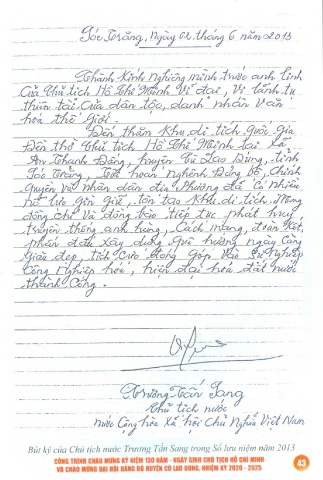 Sóc Trăng, Ngày 02 tháng 6 năm 2013
Thành Kính Nghiêng mình trước anh linh
Của Chủ tịch Hồ Chí Minh Vĩ đại, Vị lãnh tụ
thiên tài của dân tộc, danh nhân Văn
hóa thế giới.
Đến thăm Khu di tích quốc gia
Đền thờ Chủ tịch Hồ Chí Minh tại Xã
An Thạnh Đông, huyện Cù Lao Dung, tỉnh
Sóc Trăng, hoan Nghênh Đảng bộ, Chính
quyền và nhân dân địa Phương đã Có nhiều
nỗ lực gìn giữ, tôn tạo Khu di tích, Mong
đồng chí Và đồng bào tiếp tục phát huy
truyền thống anh hùng, Cách mạng, đoàn Kết,
phấn đấu Xây dựng quê hương ngày Càng
Giàu đẹp, tích Cực đóng góp Vào Sự Nghiệp
Công Nghiệp hóa, hiện đại hóa đất nước
thành Công.
Trương Tấn Sang
Chủ tịch nước
nước Cộng hòa Xã hội Chủ Nghĩa Việt Nam
Bút ký của Chủ tịch nước Trương Tấn Sang trong Sổ lưu niệm năm 2013
CÔNG TRÌNH CHÀO MỪNG KỶ NIỆM 130 NĂM - NGÀY SINH CHỦ TỊCH HỒ CHÍ MINH
VÀ CHÀO MỪNG ĐẠI HỘI ĐẢNG BỘ HUYỆN CÙ LAO DUNG, NHIỆM KỲ 2020 - 2025
43